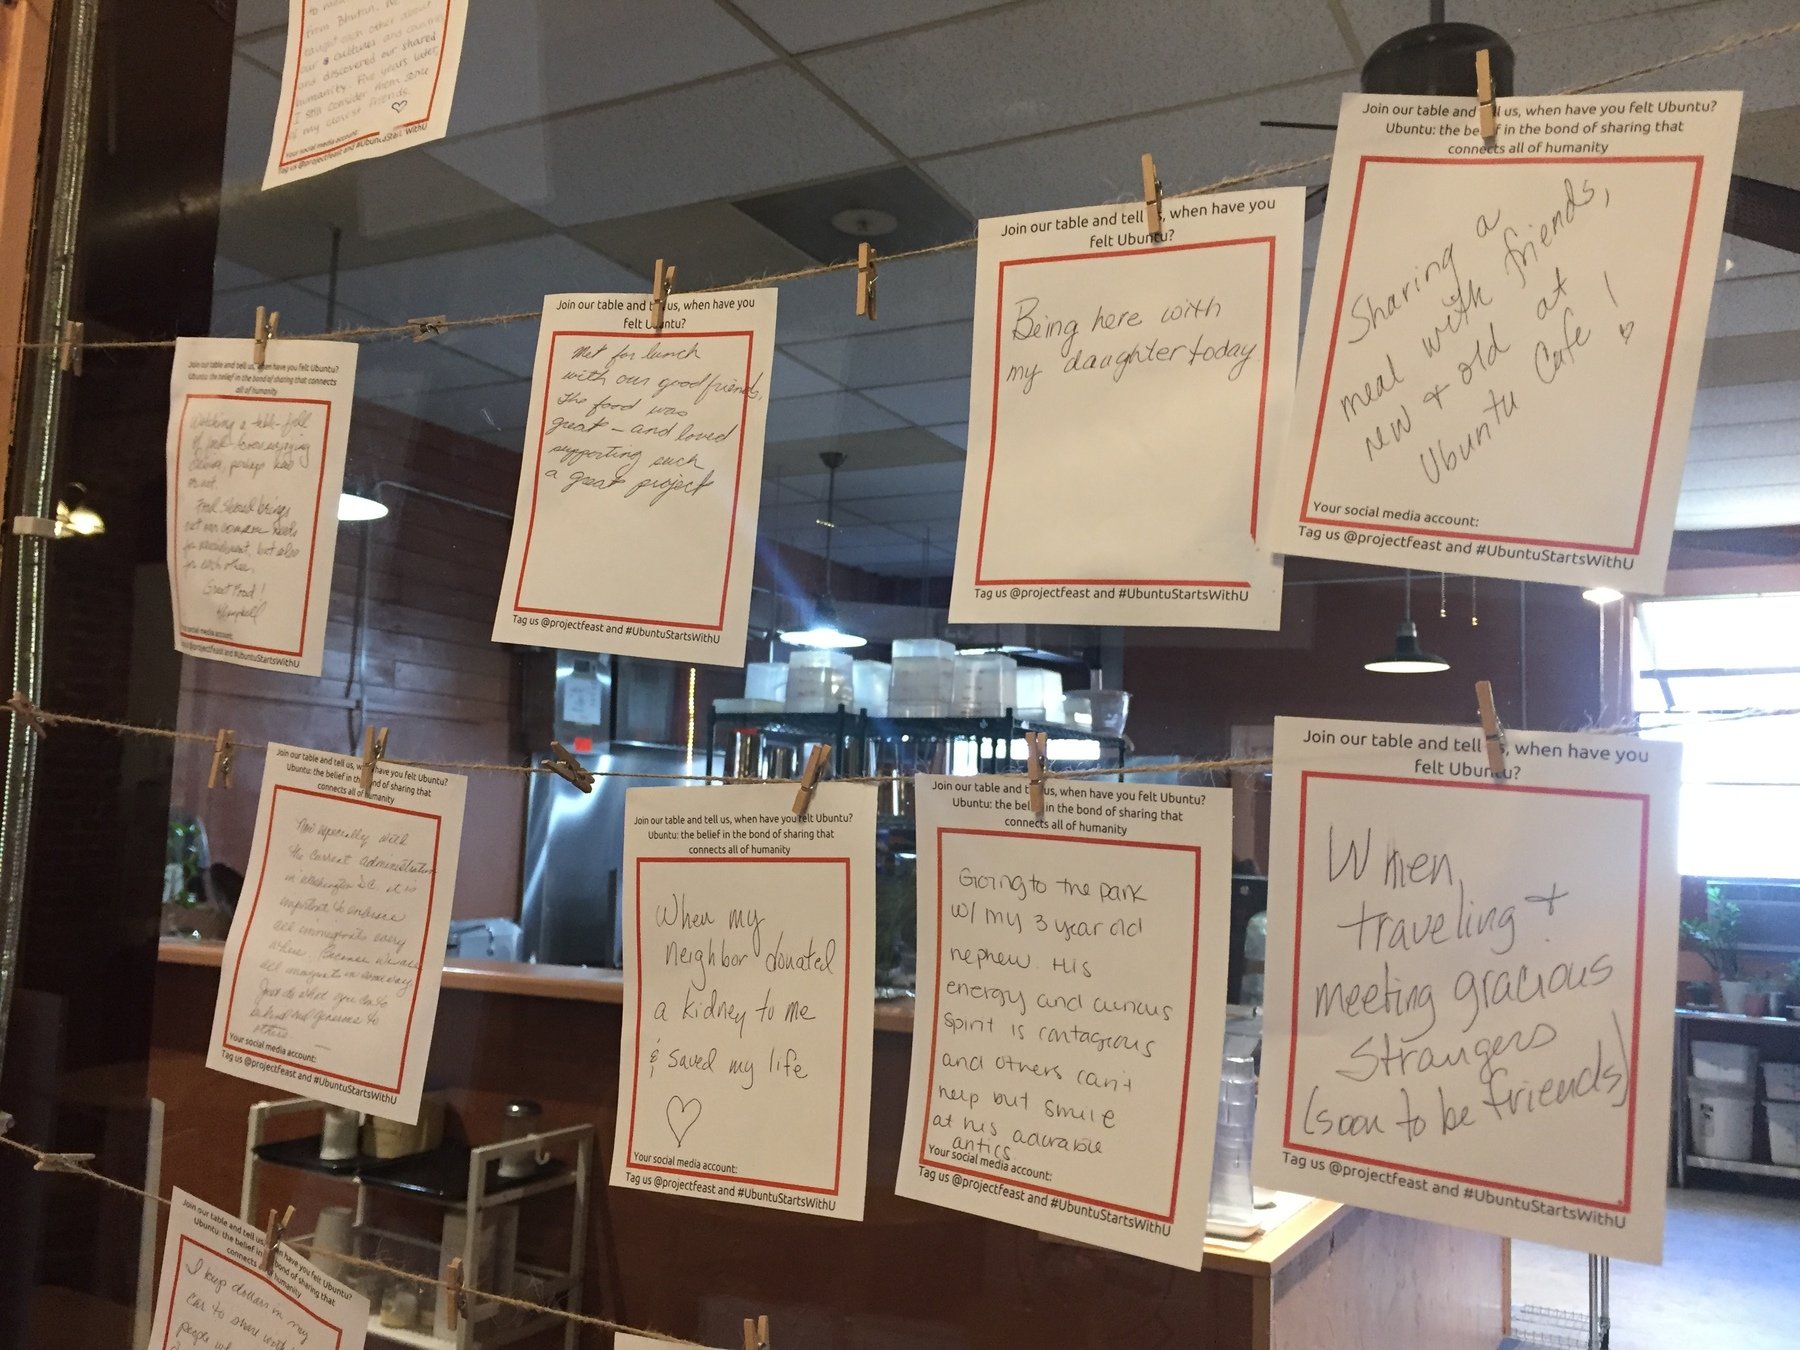 from Bhutan. We
taught each other about
our cultures and countries
and discovered our shared
humanity. Five years later
I still consider them some
of my closest friends.
Your social media account:
Tag us @projectfeast and #UbuntuStartsWithU
Join our table and tell us, when have you felt Ubuntu?
Ubuntu: the belief in the bond of sharing that connects
all of humanity
Watching a table-full
of
perhaps
or not.
Food shared brings
not our common needs
for nourishment, but also
for each other.
Great Food!
Your social media account:
Tag us @projectfeast and #UbuntuStartsWithU
Join our table and tell us, when have you
felt Ubuntu?
Met for lunch
with our good friends,
the food was
great – and loved
supporting such
a great project
Tag us @projectfeast and #UbuntuStartsWithU
Join our table and tell us, when have you
felt Ubuntu?
Being here with
my daughter today
Tag us @projectfeast and #UbuntuStartsWithU
Join our table and tell us, when have you felt Ubuntu?
Ubuntu: the belief in the bond of sharing that
connects all of humanity
Sharing a
meal with friends,
new + old at
Ubuntu Cafe!
Your social media account:
Tag us @projectfeast and #UbuntuStartsWithU
Join our table and tell us, when have you felt Ubuntu?
Ubuntu: the belief in the bond of sharing that
connects all of humanity
Now especially with
the current administration
in Washington D.C. it is
important to embrace
all immigrants every
where. Because we are
all immigrants in some way.
Just do what you can to
be kind and generous to
others.
Your social media account:
Tag us @projectfeast and #UbuntuStartsWithU
Join our table and tell us, when have you felt Ubuntu?
Ubuntu: the belief in the bond of sharing that
connects all of humanity
When my
neighbor donated
a kidney to me
& saved my life
Your social media account:
Tag us @projectfeast and #UbuntuStartsWithU
Join our table and tell us, when have you felt Ubuntu?
Ubuntu: the belief in the bond of sharing that
connects all of humanity
Going to the park
w/ my 3 year old
nephew. His
energy and curious
spirit is contagious
and others can't
help but smile
at his adorable
antics
Your social media account:
Tag us @projectfeast and #UbuntuStartsWithU
Join our table and tell us, when have you
felt Ubuntu?
When
traveling +
meeting gracious
strangers
(soon to be friends)
Tag us @projectfeast and #UbuntuStartsWithU
Join our table and tell us, when have you felt Ubuntu?
Ubuntu: the belief in the bond of sharing that
connects all of humanity
I keep dollars in my
car to share with
people